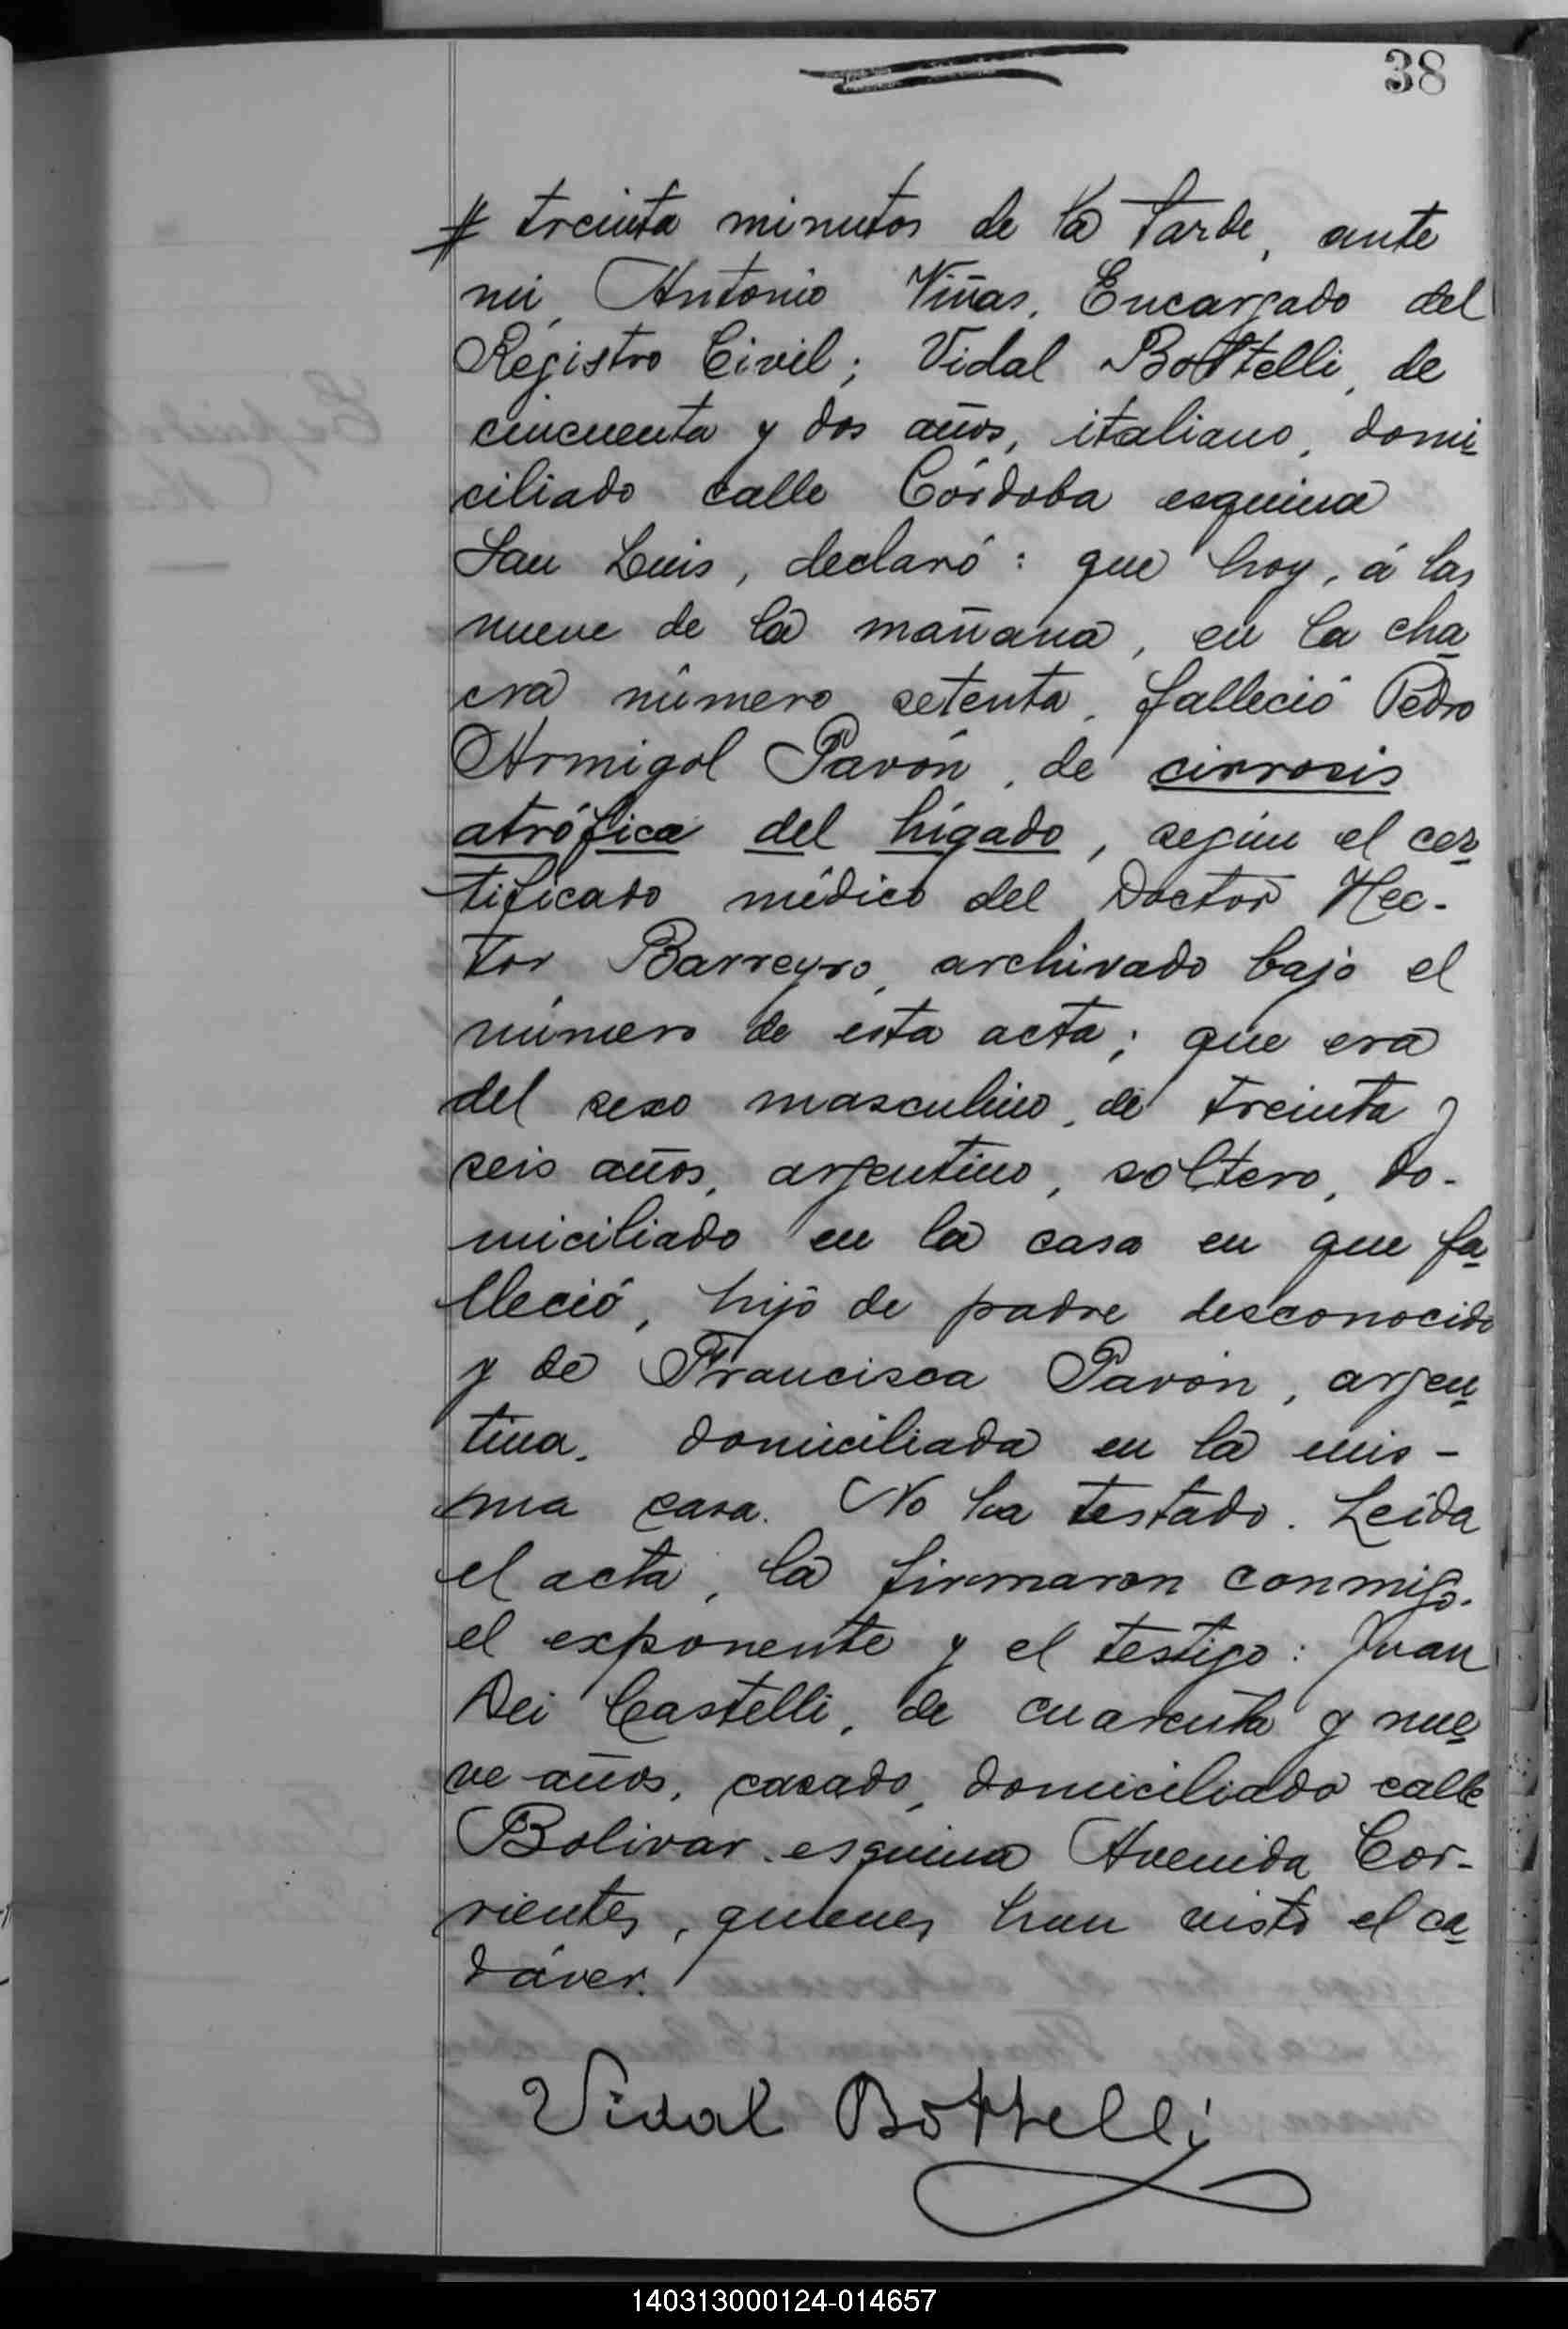 38
# treinta minutos de la tarde, ante
mi, Antonio Viñas, Encargado del
Registro Civil; Vidal Bottelli, de
cincuenta y dos años, italiano, domi-
ciliado calle Córdoba esquina
San Luis, declaró: que hoy, á las
nueve de la mañana, en la cha-
cra número setenta, falleció Pedro
Armigol Pavón, de cirrosis
atrófica del hígado, según el cer-
tificado médico del Doctor Hec-
tor Barreyro, archivado bajo el
número de esta acta; que era
del sexo masculino, de treinta y
seis años, argentino, soltero, do-
miciliado en la casa en que fa-
lleció, hijo de padre desconocido
y de Francisca Pavón, argen-
tina, domiciliada en la mis-
ma casa. No ha testado. Leída
el acta, la firmaron conmigo.
el exponente y el testigo: Juan
Dei Castelli, de cuarenta y nue-
ve años, casado, domiciliado calle
Bolivar esquina Avenida Cor-
rientes, quienes han visto el ca-
dáver.
Vidal Bottelli
140313000124-014657